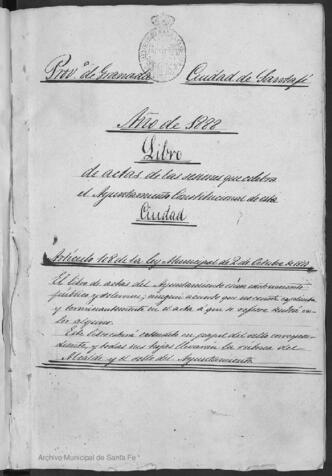 Provª de Granada
Ciudad de Santafé
Año de 1888
Libro
de actas de las sesiones que celebra
el Ayuntamiento Constitucional de esta
Ciudad
Artículo 108 de la ley Municipal de 2 de Octubre de
El libro de actas del Ayuntamiento es un instrumento
público y solemne; ningun acuerdo que no conste esplicita
y terminantemente en el acta á que se refiera tendrá va-
lor alguno.
Este libro estará estendido en papel del sello correspon-
diente, y todas sus hojas llevarán la rúbrica del
Alcalde y el sello del Ayuntamiento.
Archivo Municipal de Santa Fe